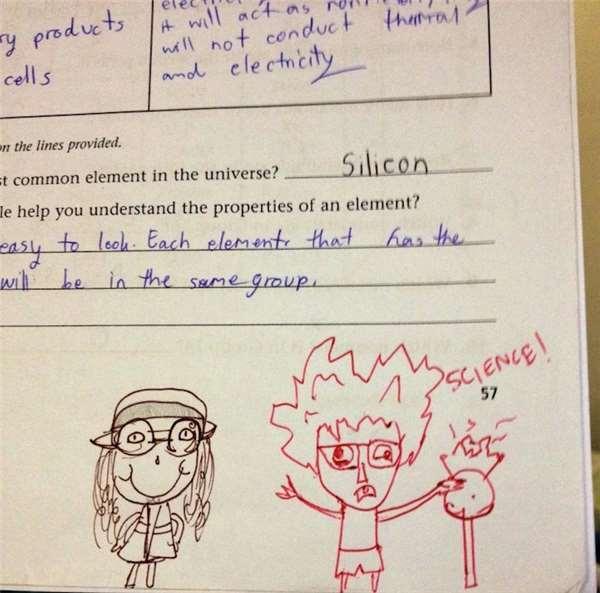 ry products
cells
it will act as non
will not conduct thermal
and electricity
on the lines provided.
st common element in the universe? Silicon
le help you understand the properties of an element?
easy to look. Each element that has the
will be in the same group.
SCIENCE!
57